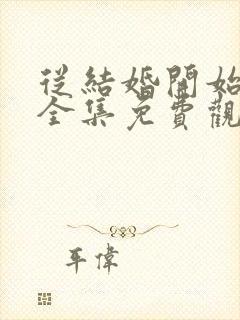 從結婚開始
全集免費觀
平偉